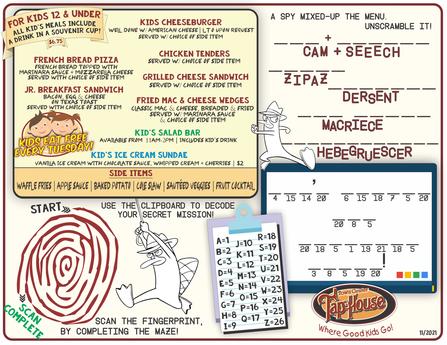 FOR KIDS 12 & UNDER
ALL KID'S MEALS INCLUDE
A DRINK IN A SOUVENIR CUP!
$6.75
KIDS CHEESEBURGER
WELL DONE W/ AMERICAN CHEESE | LT & UPON REQUEST
SERVED W/ CHOICE OF SIDE ITEM
FRENCH BREAD PIZZA
FRENCH BREAD TOPPED WITH
MARINARA SAUCE + MOZZARELLA CHEESE
SERVED W/ CHOICE OF SIDE ITEM
CHICKEN TENDERS
SERVED W/ CHOICE OF SIDE ITEM
GRILLED CHEESE SANDWICH
SERVED W/ CHOICE OF SIDE ITEM
JR. BREAKFAST SANDWICH
BACON, EGG, & CHEESE
ON TEXAS TOAST
SERVED W/ CHOICE OF SIDE ITEM
FRIED MAC & CHEESE WEDGES
CLASSIC MAC & CHEESE, BREADED & FRIED
SERVED W/ MARINARA SAUCE
+ CHOICE OF SIDE ITEM
KIDS EAT FREE
EVERY TUESDAY!
KID'S SALAD BAR
AVAILABLE FROM 11AM-3PM | INCLUDES KID'S DRINK
KID'S ICE CREAM SUNDAE
VANILLA ICE CREAM WITH CHOCOLATE SAUCE, WHIPPED CREAM + CHERRIES | $2
SIDE ITEMS
WAFFLE FRIES | APPLE SAUCE | BAKED POTATO | COLE SLAW | SAUTÉED VEGGIES | FRUIT COCKTAIL
A SPY MIXED-UP THE MENU.
UNSCRAMBLE IT!
+
CAM + SEEECH
ZIPAZ
DERSENT
MACRIECE
HEBEGRUESCER
START
USE THE CLIPBOARD TO DECODE
YOUR SECRET MISSION!
SCAN COMPLETE
SCAN THE FINGERPRINT,
BY COMPLETING THE MAZE!
A=1 J=10 R=18
B=2 K=11 S=19
C=3 L=12 T=20
D=4 M=13 U=21
E=5 N=14 V=22
F=6 O=15 W=23
G=7 P=16 X=24
H=8 Q=17 Y=25
I=9 Z=26
'
4 15 14 20 12 5 20
20 8 5
20 18 5 1 19 21 18 5
!
3 8 5 19 20
Town Center
Tap-House
Where Good Kids Go!
11/2021